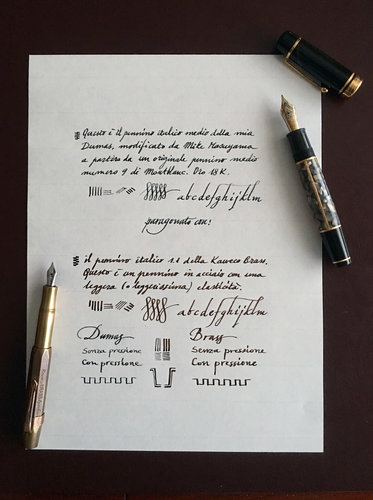 Questo è il pennino italico medio della mia
Dumas, modificato da Mike Masuyama
a partire da un originale pennino medio
numero 9 di Montblanc. Oro 18 K.
abcdefghijklm
paragonato con:
il pennino italico 1.1 della Kaweco Brass.
Questo è un pennino in acciaio con una
leggera (o leggerissima) elasticità.
abcdefghijklm
Dumas Brass
Senza pressione Senza pressione
Con pressione Con pressione